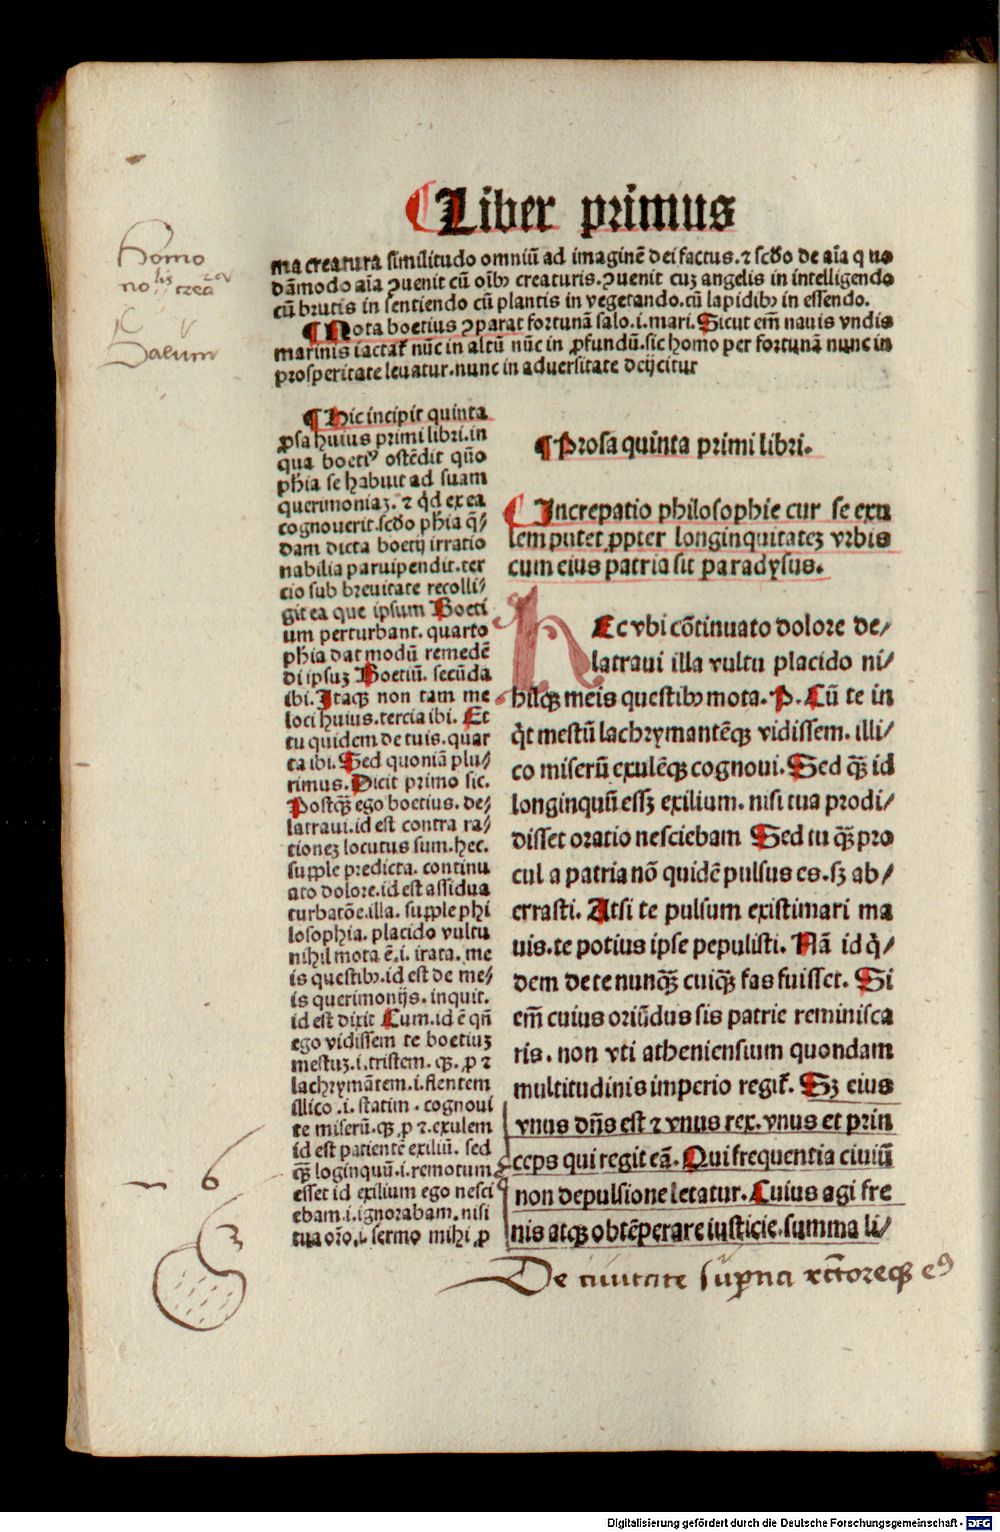 Liber primus
ma creatura similitudo omniū ad imaginē dei factus. ⁊ scd̄o de aīa q uo
dāmodo aīa ꝯuenit cū oībꝫ creaturis. ꝯuenit cuꝫ angelis in intelligendo
cū brutis in sentiendo cū plantis in vegetando. cū lapidibꝫ in essendo.
¶ Nota boetius ꝯparat fortunā salo .i. mari. Sicut em̄ nauis vndis
marinis iactat᷑ nūc in altū nūc in ꝓfundū. sic homo per fortunā nunc in
prosperitate leuatur. nunc in aduersitate deijcitur
Homo
Salum
¶ Hic incipit quinta
ꝓsa huius primi libri. in
qua boetiꝰ ostēdit quō
ph̄ia se habuit ad suam
querimoniaꝫ. ⁊ qd̄ ex ea
cognouerit. scd̄o ph̄ia q̄/
dam dicta boetij irratio
nabilia paruipendit. ter
cio sub breuitate recolli/
git ea que ipsum Boeti
um perturbant. quarto
ph̄ia dat modū remedē
di ipsuꝫ Boetiū. secūda
ibi. Itaqꝫ non tam me
loci huius. tercia ibi. Et
tu quidem de tuis. quar
ta ibi. Sed quoniā plu/
rimus. Dicit primo sic.
Postqꝫ̄ ego boetius. de/
latraui. id est contra ra/
tioneꝫ locutus sum. hec.
supple predicta. continu
ato dolore. id est assidua
turbatōe. illa. supple phi
losophia. placido vultu
nihil mota ē .i. irata. me
is questibꝫ. id est de me/
is querimonijs. inquit.
id est dixit Cum. id ē qn̄
ego vidissem te boetiuꝫ
mestuꝫ .i. tristem. qꝫ. ꝓ ⁊
lachrymātem .i. flentem
illico .i. statim. cognoui
te miserū. qꝫ ꝓ ⁊. exulem
id est patientē exiliū. sed
qꝫ̄ loginquū .i. remotum
esset id exilium ego nesci
ebam .i. ignorabam. nisi
tua orō .i. sermo mihi ꝓ
¶ Prosa quinta primi libri.
¶ Increpatio philosophie cur se exu
lem putet ꝓpter longinquitateꝫ vrbis
cum eius patria sit paradysus.
hEc vbi cōtinuato dolore de/
latraui illa vultu placido ni/
hilqꝫ meis questibꝫ mota. P. Cū te in
q̇t mestū lachrymantēqꝫ vidissem. illi/
co miserū exulēqꝫ cognoui. Sed qꝫ̄ id
longinquū essꝫ exilium. nisi tua prodi/
disset oratio nesciebam Sed tu qꝫ̄ pro
cul a patria nō quidē pulsus es. sꝫ ab/
errasti. Atsi te pulsum existimari ma
uis. te potius ipse pepulisti. Nā id q̇/
dem de te nunqꝫ̄ cuiqꝫ̄ fas fuisset. Si
em̄ cuius oriūdus sis patrie reminisca
ris. non vti atheniensium quondam
multitudinis imperio regit᷑. Sꝫ eius
vnus dn̄s est ⁊ vnus rex. vnus et prin
ceps qui regit eā. Qui frequentia ciuiū
non depulsione letatur. Cuius agi fre
nis atqꝫ obtēperare iusticie. summa li/
De ciuitate suꝑna rectoreqꝫ eꝰ
Digitalisierung gefördert durch die Deutsche Forschungsgemeinschaft - DFG